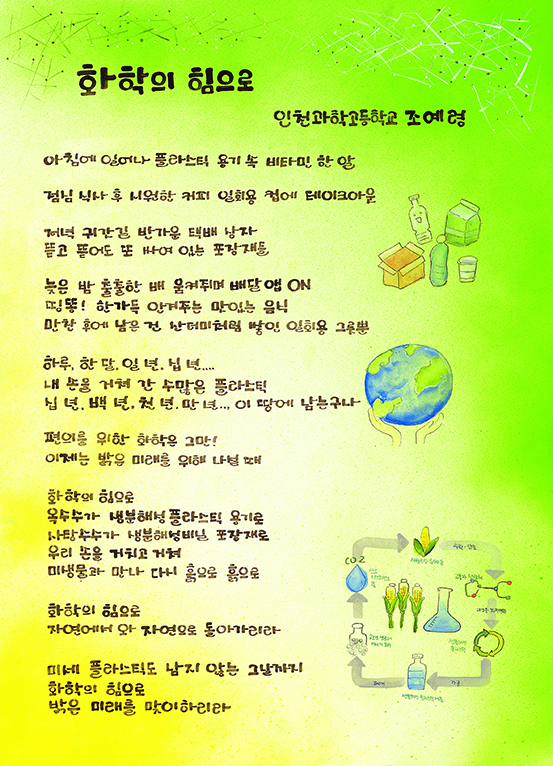 화학의 힘으로
인천과학고등학교 조예령
아침에 일어나 플라스틱 용기 속 비타민 한 알
점심 식사 후 시원한 커피 일회용 컵에 테이크아웃
저녁 귀갓길 반가운 택배 상자
뜯고 뜯어도 또 쌓여 있는 포장재들
늦은 밤 출출한 배 움켜쥐며 배달앱 ON
띵똥! 한가득 안겨주는 맛있는 음식
만찬 후에 남은 건 산더미처럼 쌓인 일회용 그릇뿐
하루, 한 달, 일 년, 십 년....
내 손을 거쳐 간 수많은 플라스틱
십 년, 백 년, 천 년, 만 년..., 이 땅에 남는구나
편의를 위한 화학은 그만!
이제는 밝은 미래를 위해 나설 때
화학의 힘으로
옥수수가 생분해성 플라스틱 용기로
사탕수수가 생분해성비닐 포장재로
우리 손을 거치고 거쳐
미생물과 만나 다시 흙으로 흙으로
화학의 힘으로
자연에서 와 자연으로 돌아가리라
미세 플라스틱도 남지 않는 그날까지
화학의 힘으로
밝은 미래를 맞이하리라
CO2
가공